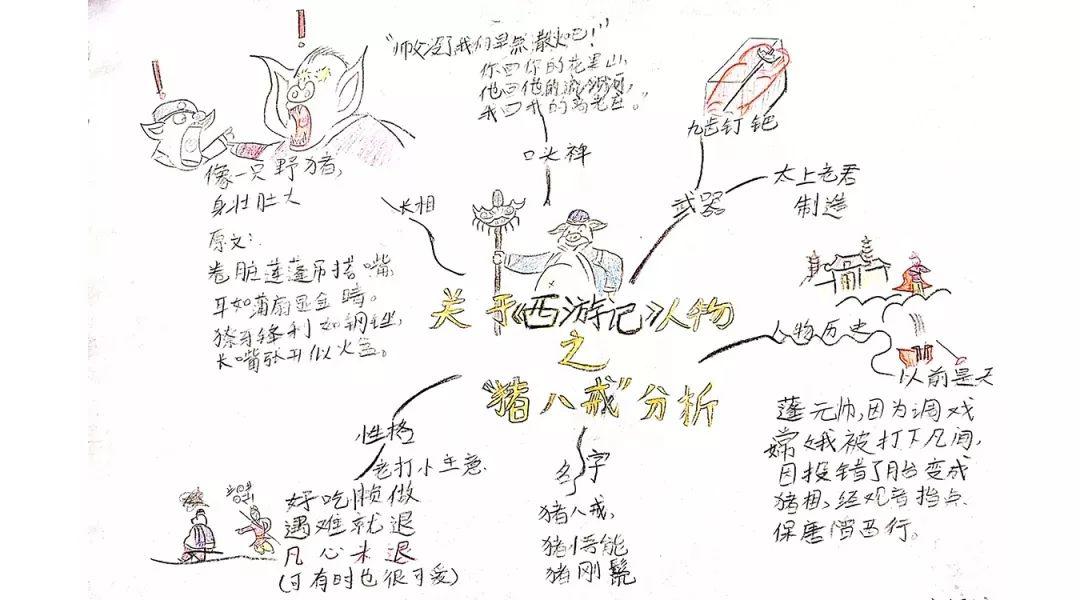 "师父没了我们早点散火吧!"
你回你的花果山,
他回他的流沙河,
我回我的高老庄。"
口头禅
九齿钉钯
武器
太上老君
制造
像一只野猪,
身壮肚大
长相
原文:
卷脏莲蓬吊搭嘴,
耳如蒲扇显金睛。
獠牙锋利如钢锉,
长嘴张开似火盆。
关于《西游记》人物
之
"猪八戒"分析
人物历史
以前是天
蓬元帅,因为调戏
嫦娥被打下凡间,
因投错了胎变成
猪相,经观音指点
保唐僧西行。
性格
老打小主意.
好吃懒做
遇难就退
凡心未退
(可有时也很可爱)
名字
猪八戒,
猪悟能
猪刚鬣